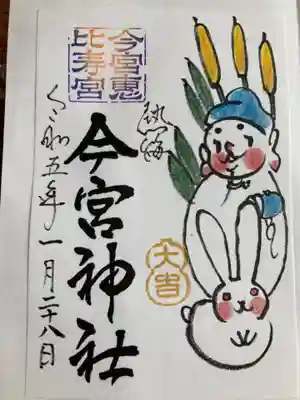 今宮惠
比寿宮
熱海
大吉
今宮神社
令和五年一月二十八日